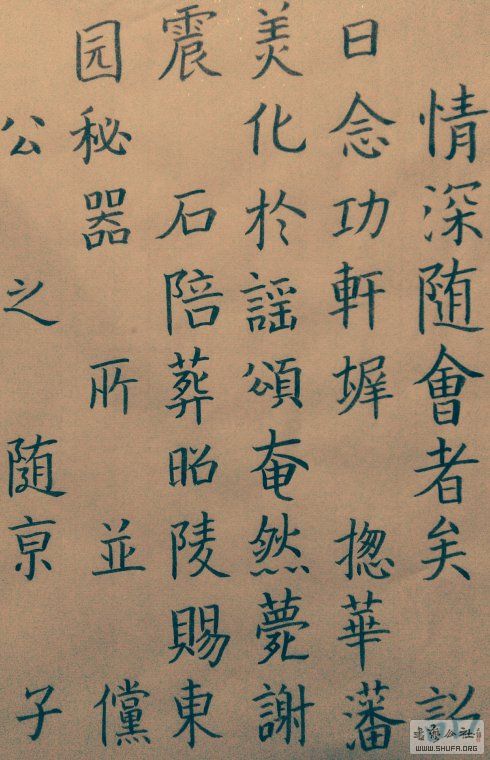 情深随會者矣
日念功軒墀 揔華藩
美化於謡頌奄然薨謝
震 石陪葬昭陵賜東
园秘器 所 並 儻
公 之 随亰 子
WWW.SHUFA.ORG